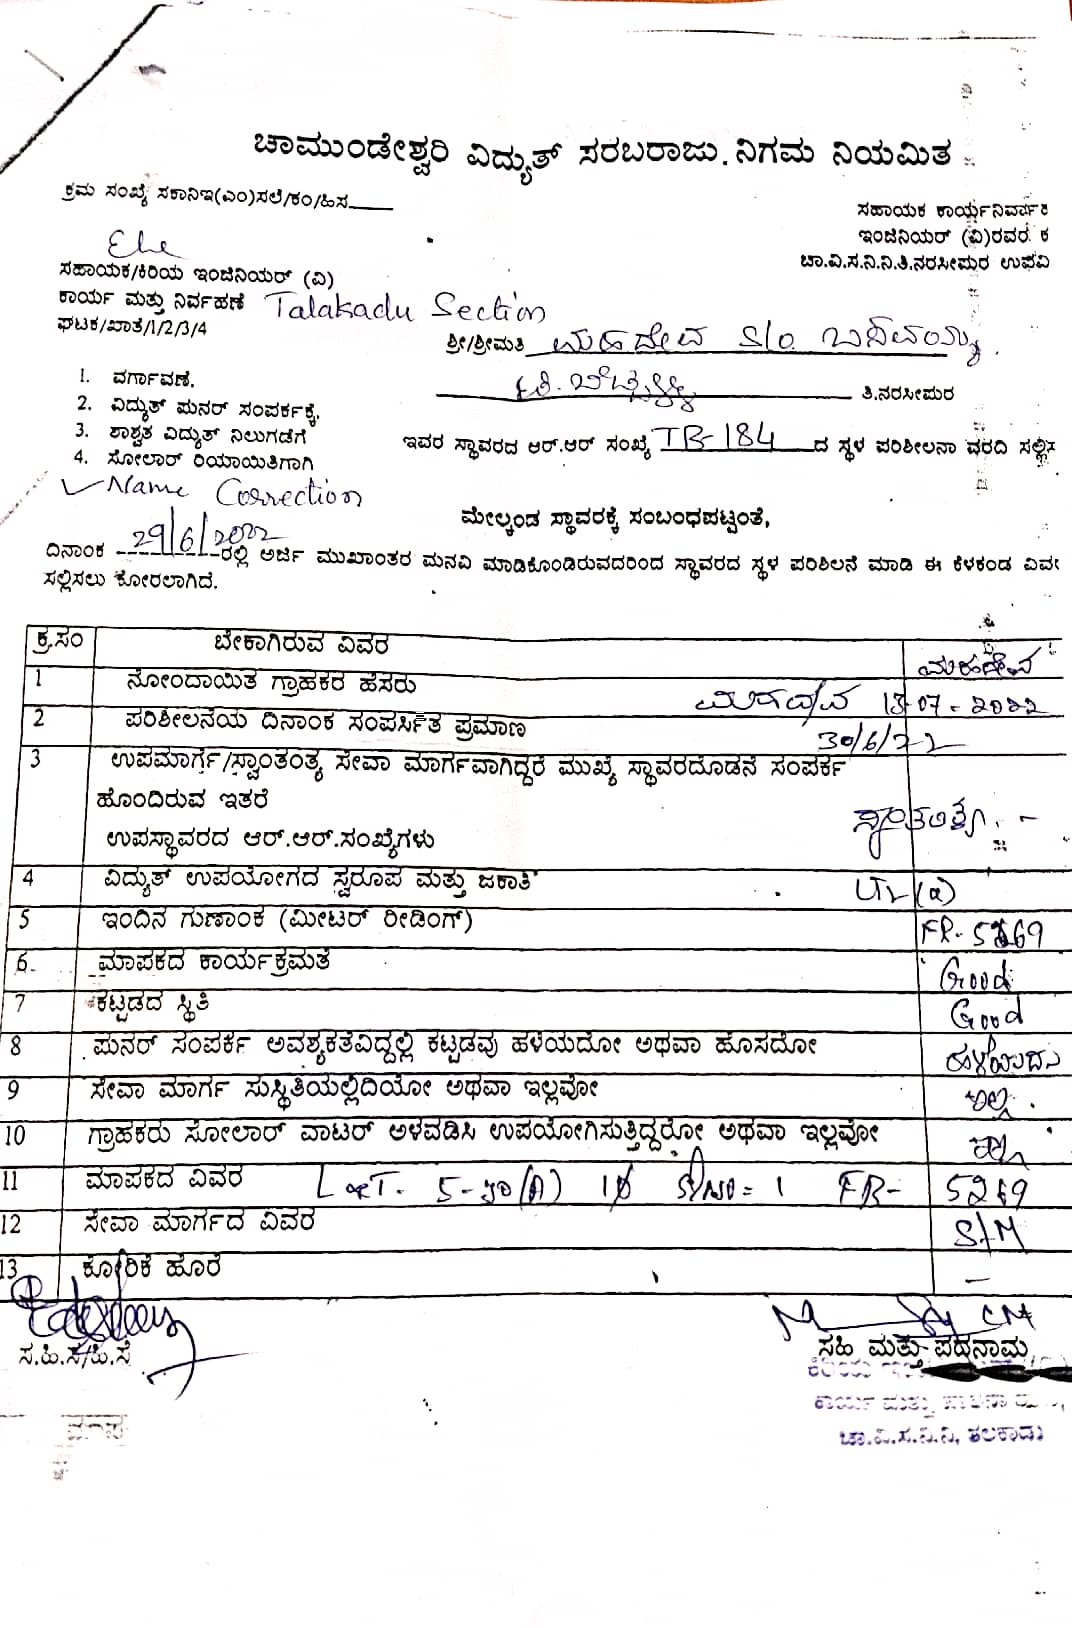 ಚಾಮುಂಡೇಶ್ವರಿ ವಿದ್ಯುತ್ ಸರಬರಾಜು ನಿಗಮ ನಿಯಮಿತ
ಕ್ರಮ ಸಂಖ್ಯೆ ಸಕಾನಿಇ(ಎಂ)ಸಲೆ/ಕಂ/ಹಿಸ
ಸಹಾಯಕ ಕಾರ್ಯನಿರ್ವಾಹಕ
ಇಂಜಿನಿಯರ್ (ವಿ)ರವರ ಕ
ಚಾ.ವಿ.ಸ.ನಿ.ನಿ.ತಿ.ನರಸೀಪುರ ಉಪವಿ
ಸಹಾಯಕ/ಕಿರಿಯ ಇಂಜಿನಿಯರ್ (ವಿ)
ಕಾರ್ಯ ಮತ್ತು ನಿರ್ವಹಣೆ Talakadu Section
ಘಟಕ/ಖಾತೆ/1/2/3/4
ಶ್ರೀ/ಶ್ರೀಮತಿ ಮಹದೇವ S/o
ತಿ.ನರಸೀಪುರ
1. ವರ್ಗಾವಣೆ.
2. ವಿದ್ಯುತ್ ಪುನರ್ ಸಂಪರ್ಕಕ್ಕೆ
3. ಶಾಶ್ವತ ವಿದ್ಯುತ್ ನಿಲುಗಡೆಗೆ
4. ಸೋಲಾರ್ ರಿಯಾಯಿತಿಗಾಗಿ
ಇವರ ಸ್ಥಾವರದ ಆರ್.ಆರ್ ಸಂಖ್ಯೆ TB-184 ದ ಸ್ಥಳ ಪರಿಶೀಲನಾ ವರದಿ ಸಲ್ಲಿಸ
Name Correction
ಮೇಲ್ಕಂಡ ಸ್ಥಾವರಕ್ಕೆ ಸಂಬಂಧಪಟ್ಟಂತೆ,
ದಿನಾಂಕ 29/6/2022 ರಲ್ಲಿ ಅರ್ಜಿ ಮುಖಾಂತರ ಮನವಿ ಮಾಡಿಕೊಂಡಿರುವದರಿಂದ ಸ್ಥಾವರದ ಸ್ಥಳ ಪರಿಶಿಲನೆ ಮಾಡಿ ಈ ಕೆಳಕಂಡ ವಿವ
ಸಲ್ಲಿಸಲು ಕೋರಲಾಗಿದೆ.
ಕ್ರ.ಸಂ ಬೇಕಾಗಿರುವ ವಿವರ
1 ನೋಂದಾಯಿತ ಗ್ರಾಹಕರ ಹೆಸರು ಮಹದೇವ
2 ಪರಿಶೀಲನೆಯ ದಿನಾಂಕ ಸಂಪರ್ಸಿತ ಪ್ರಮಾಣ 30/6/22
3 ಉಪಮಾರ್ಗ/ಸ್ವಾಂತಂತ್ರ್ಯ ಸೇವಾ ಮಾರ್ಗವಾಗಿದ್ದರೆ ಮುಖ್ಯ ಸ್ಥಾವರದೊಡನೆ ಸಂಪರ್ಕ
ಹೊಂದಿರುವ ಇತರೆ
ಉಪಸ್ಥಾವರದ ಆರ್.ಆರ್.ಸಂಖ್ಯೆಗಳು
4 ವಿದ್ಯುತ್ ಉಪಯೋಗದ ಸ್ವರೂಪ ಮತ್ತು ಜಕಾತಿ
5 ಇಂದಿನ ಗುಣಾಂಕ (ಮೀಟರ್ ರೀಡಿಂಗ್) FR-5269
6 ಮಾಪಕದ ಕಾರ್ಯಕ್ರಮತೆ Good
7 ಕಟ್ಟಡದ ಸ್ಥಿತಿ Good
8 ಪುನರ್ ಸಂಪರ್ಕ ಅವಶ್ಯಕತೆವಿದ್ದಲ್ಲಿ ಕಟ್ಟಡವು ಹಳೆಯದೋ ಅಥವಾ ಹೊಸದೋ ಹಳೆಯದು
9 ಸೇವಾ ಮಾರ್ಗ ಸುಸ್ಥಿತಿಯಲ್ಲಿದಿಯೋ ಅಥವಾ ಇಲ್ಲವೋ
10 ಗ್ರಾಹಕರು ಸೋಲಾರ್ ವಾಟರ್ ಅಳವಡಿಸಿ ಉಪಯೋಗಿಸುತ್ತಿದ್ದರೋ ಅಥವಾ ಇಲ್ಲವೋ
11 ಮಾಪಕದ ವಿವರ L&T- 5-30(A) 1Ø Sl/No = 1 FR- 5269
12 ಸೇವಾ ಮಾರ್ಗದ ವಿವರ S/M
13 ಕೋರಿಕೆ ಹೊರೆ -
ಸ.ಹಿ.ಸ/ಹಿ.ಸ
ಸಹಿ ಮತ್ತು ಪದನಾಮ
ಚಾ.ವಿ.ಸ.ನಿ.ನಿ, ತಲಕಾಡು